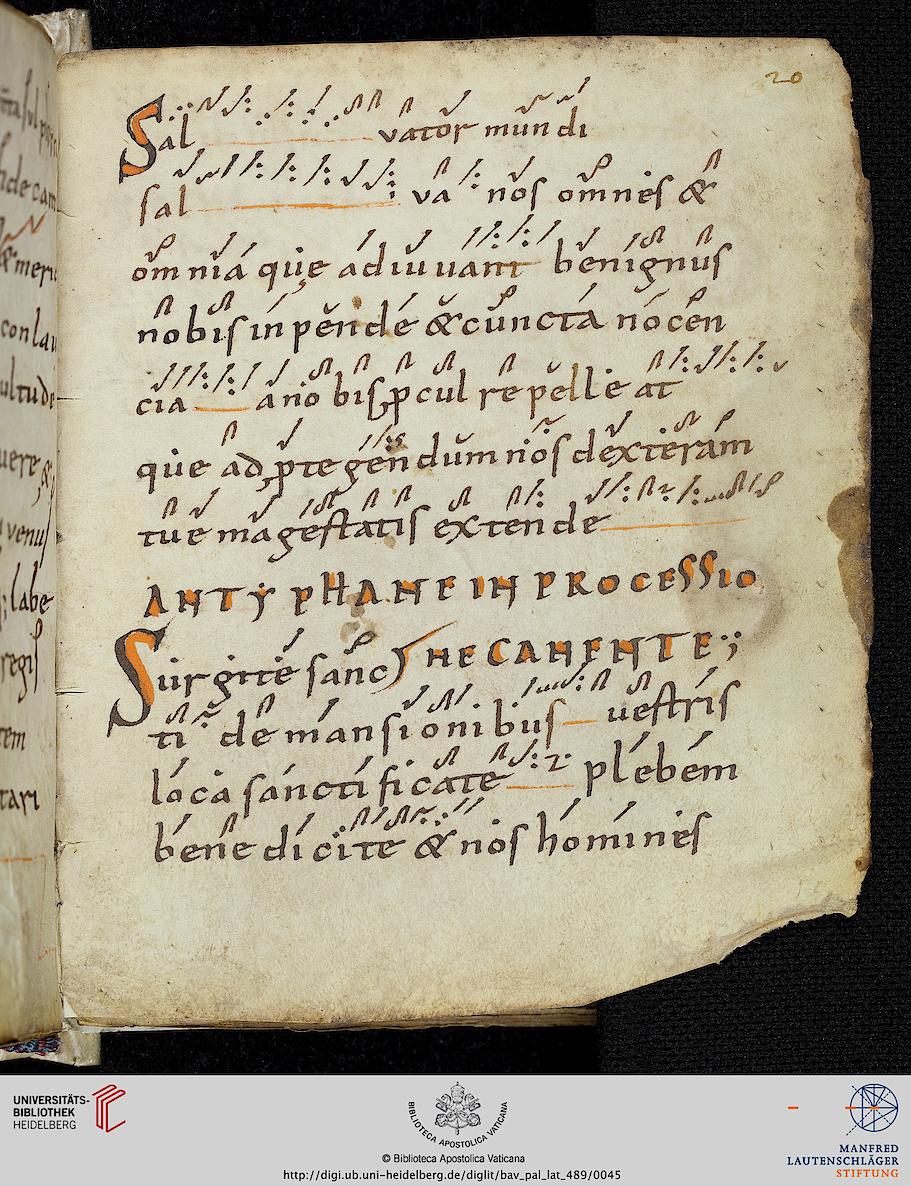 20
Sal vator mundi
sal va nos omnes &
omnia que adiuuant benignus
nobis inpende & cuncta nocen
cia a nobis ꝓcul repelle at
que ad ꝓtegendum nos dexteram
tue magestatis extende
ANTYPHANE IN PROCESSIO
NE CANENTE;
Surgite sanc
ti de mansionibus uestris
loca sanctificate plebem
benedicite & nos homines
UNIVERSITÄTS-
BIBLIOTHEK
HEIDELBERG
BIBLIOTECA APOSTOLICA VATICANA
© Biblioteca Apostolica Vaticana
http://digi.ub.uni-heidelberg.de/diglit/bav_pal_lat_489/0045
MANFRED
LAUTENSCHLÄGER
STIFTUNG